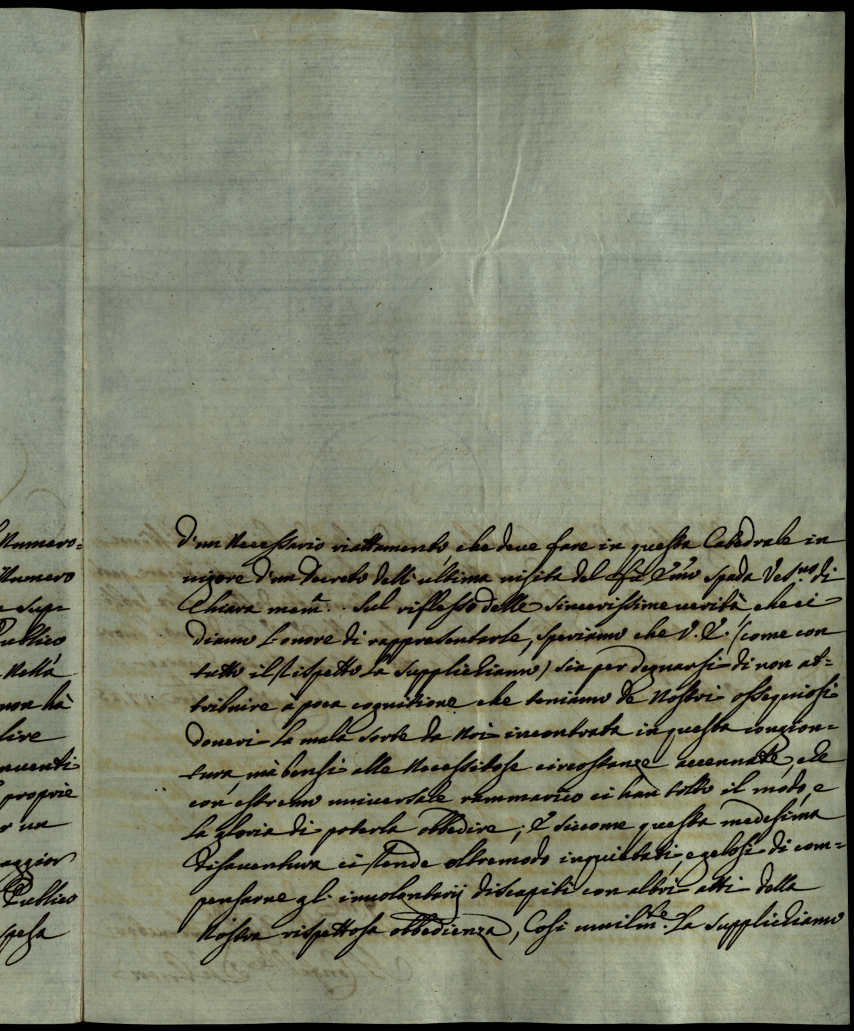 Numero=
Numero
e sup=
Publico
Nella
non hà
live
nuenti
proprie
r un
aggior
Publico
spesa
d'un Necessario riattamento, che deve fare in questa Catedrale in
uigore d'un Decreto dell'ultima uisita del fù Emo Spada Ves.uo di
Chiara mem. Sul riflesso delle sincerissime uerità, che ci
diamo l'onore di rappresentarle, speriamo che V. E. (come con
tutto il Rispetto La Supplichiamo) sia per degnarsi di non at=
tribuire à poca cognitione che teniamo de Nostri ossequiosi
doueri la mala sorte da Noi incontrata in questa congion=
tura mà bensi alle Necessitose circostanze accennate, che
con estremo uniuersale rammarico ci han tolto il modo, e
la gloria di poterla obbedire; E siccome questa medesima
disauentura ci Rende oltremodo inquietati, e gelosi di com=
pensarne gl'inuolontarij discapiti con altri atti della
Nostra rispettosa obbedienza, Così umilm.te La Supplichiamo